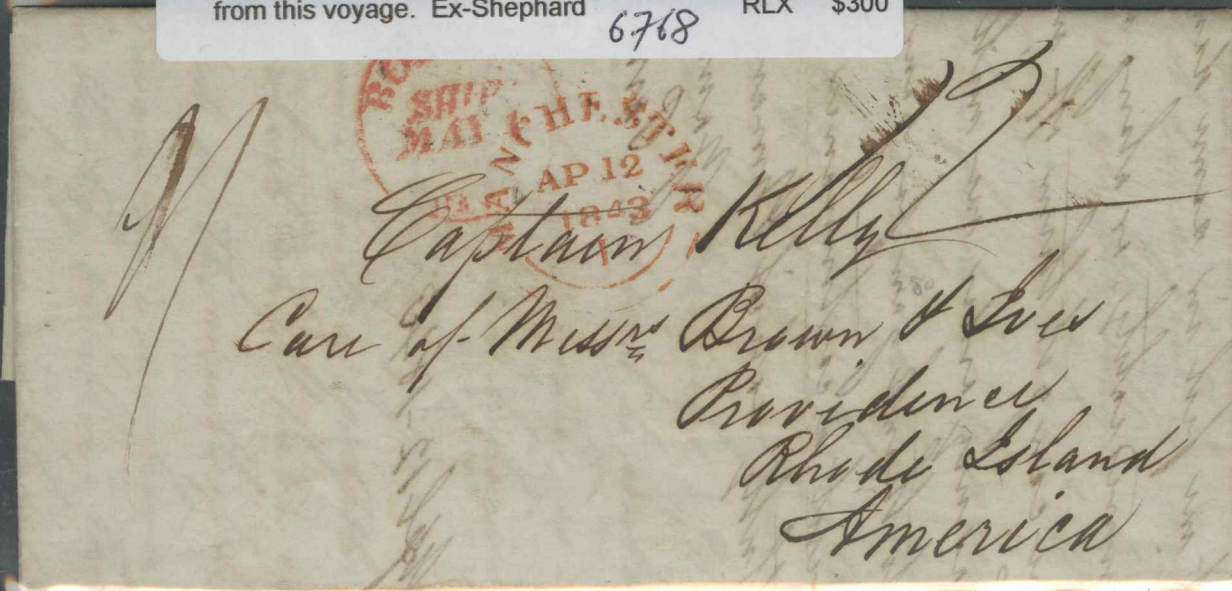 from this voyage. Ex-Shephard RLX $300
6768
SHIP
MAY
MANCHESTER
AP 12
1843
1/
12
Captain Kelly
Care of Messrs Brown & Ives
Providence
Rhode Island
America